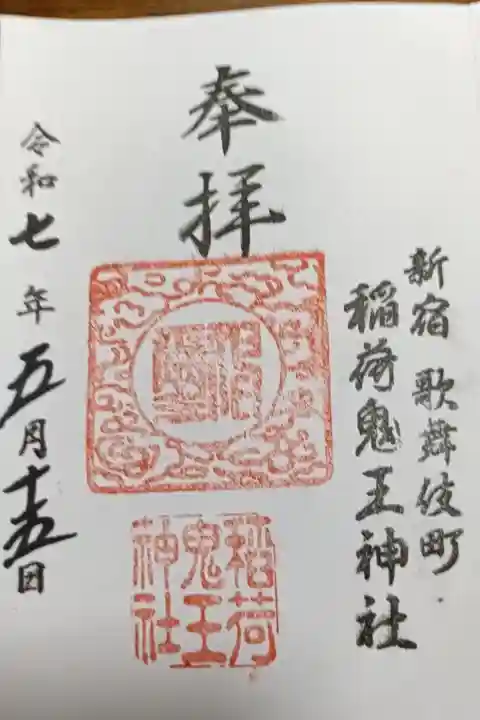 新宿 歌舞伎町
稲荷鬼王神社
奉拝
稲荷
鬼王
神社
令和七年五月十五日